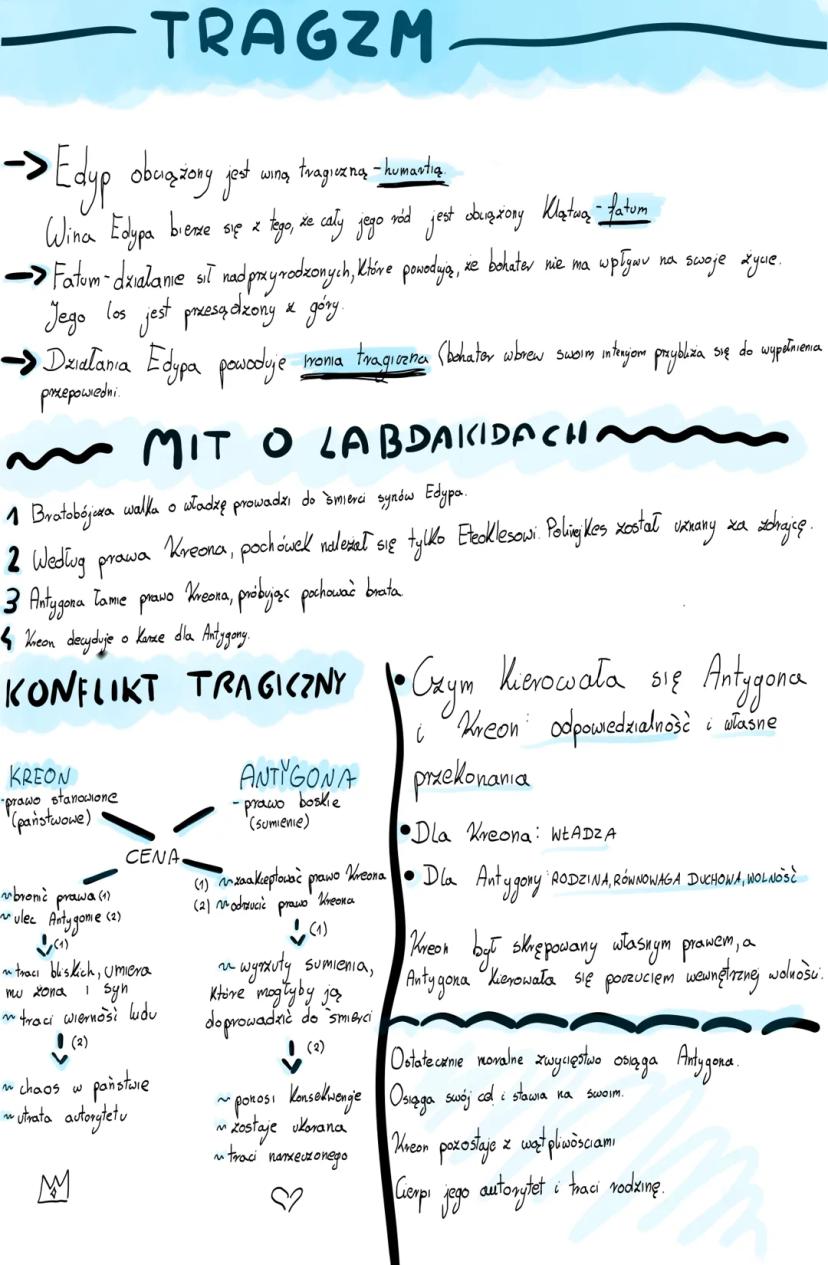 TRAGZM
→ Edyp obciążony jest winą tragiczną - humartią.
Wina Edypa bierze się z tego, że cały jego ród jest obciążony klątwą - fatum
→ Fatum - działanie sił nadprzyrodzonych, które powodują, że bohater nie ma wpływu na swoje życie.
Jego los jest przesądzony z góry.
→ Działania Edypa powoduje ironia tragiczna (bohater wbrew swoim intencjom przybliża się do wypełnienia
przepowiedni.
MIT O LABDAKIDACH
1 Bratobójcza walka o władzę prowadzi do śmierci synów Edypa.
2 Według prawa Kreona, pochówek należał się tylko Eteoklesowi. Polinejkes został uznany za zdrajcę.
3 Antygona łamie prawo Kreona, próbując pochować brata.
4 Kreon decyduje o karze dla Antygony.
KONFLIKT TRAGICZNY
KREON
- prawo stanowione
(państwowe)
ANTYGONA
- prawo boskie
(sumienie)
CENA
~ bronić prawa (1)
~ ulec Antygonie (2)
↓ (1)
~ traci bliskich, umiera
mu żona i syn
~ traci wierność ludu
↓ (2)
~ chaos w państwie
~ utrata autorytetu
(1) ~ zaakceptować prawo Kreona
(2) ~ odrzucić prawo Kreona
↓ (1)
~ wyrzuty sumienia,
które mogłyby ją
doprowadzić do śmierci
↓ (2)
~ ponosi konsekwencje
~ zostaje ukarana
~ traci narzeczonego
• Czym kierowała się Antygona
i Kreon: odpowiedzialność i własne
przekonania
• Dla Kreona: WŁADZA
• Dla Antygony: RODZINA, RÓWNOWAGA DUCHOWA, WOLNOŚĆ
Kreon był skrępowany własnym prawem, a
Antygona kierowała się poczuciem wewnętrznej wolności.
Ostatecznie moralne zwycięstwo osiąga Antygona.
Osiąga swój cel i stawia na swoim.
Kreon pozostaje z wątpliwościami
Cierpi jego autorytet i traci rodzinę.